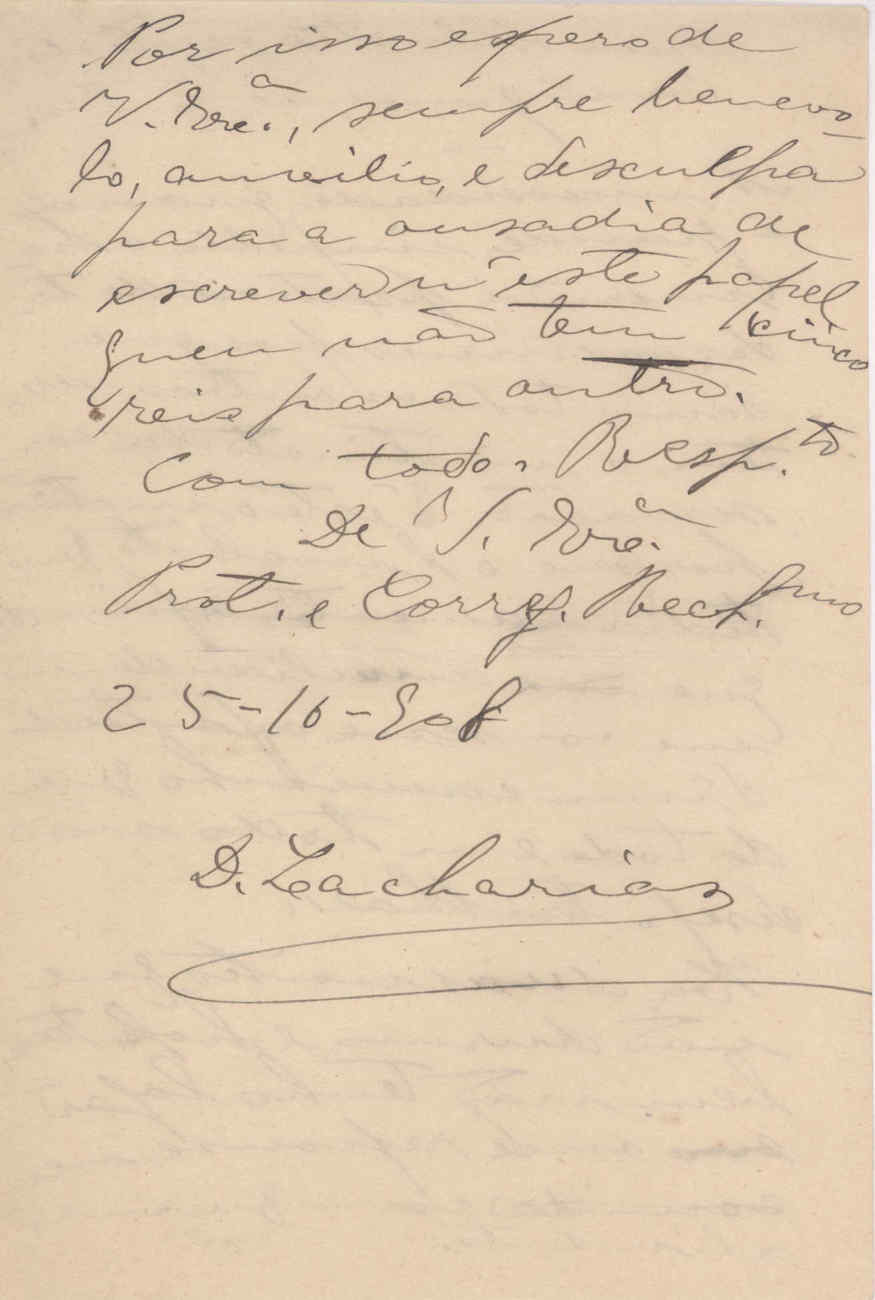 Por isso espero de
V. Exc.ª, sempre benevo-
lo, auxilio, e desculpa
para a ousadia de
escrever n'este papel
quem não tem cinco
reis para outro.
Com todo. Resp.to
De V. Exc.ª
Prot. e Corrg. Rec.mo
25-10-908
D. Zacharias